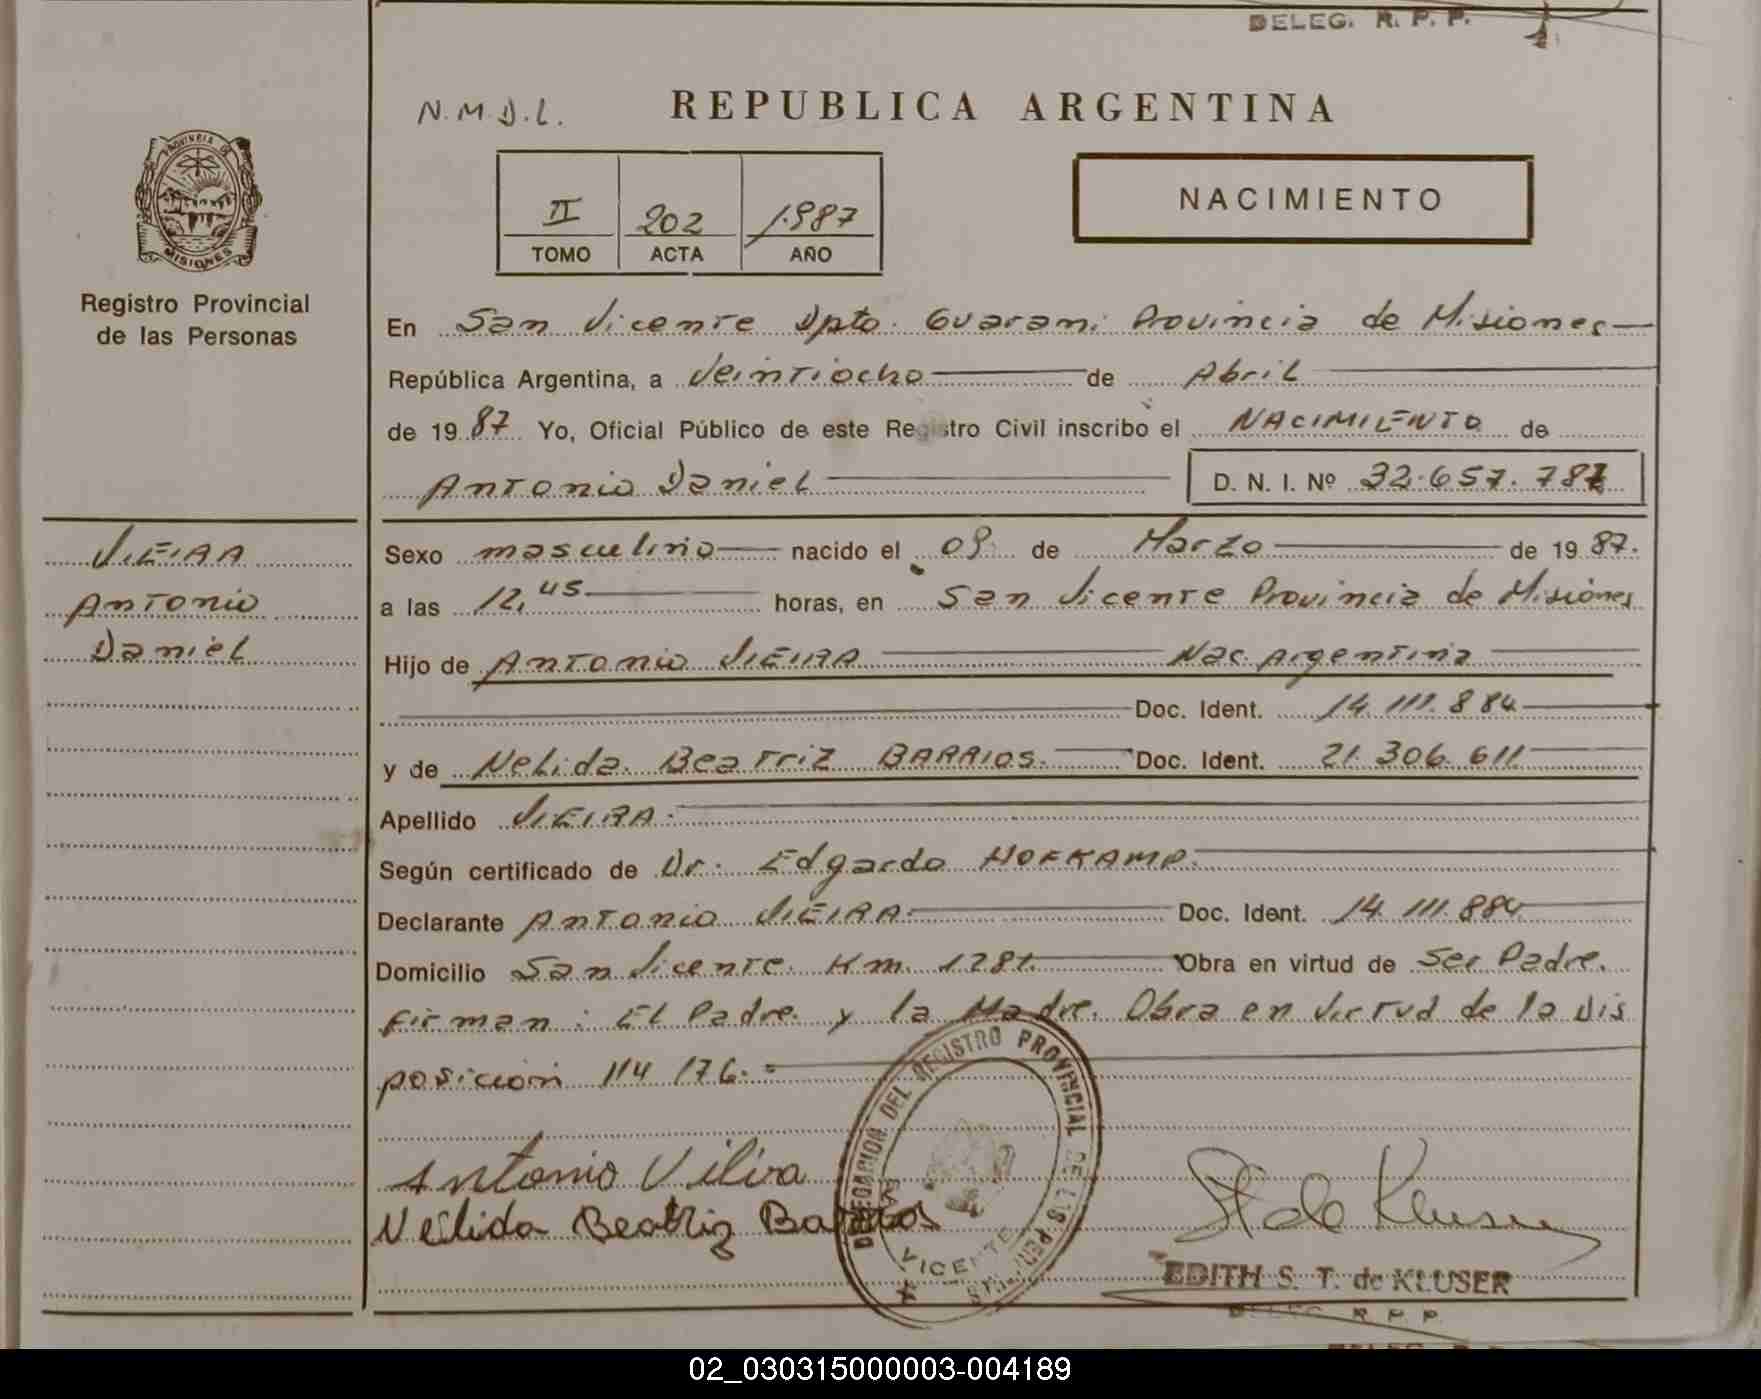 DELEG. R. P. P.
N.M.D.L.
REPUBLICA ARGENTINA
PROVINCIA DE
MISIONES
Registro Provincial
de las Personas
II 202 1987
TOMO ACTA AÑO
NACIMIENTO
En San Vicente Dpto. Guarani Provincia de Misiones
República Argentina, a Veintiocho de Abril
de 1987 Yo, Oficial Público de este Registro Civil inscribo el NACIMIENTO de
Antonio Daniel D. N. I. Nº 32.657.787
VIEIRA
Antonio
Daniel
Sexo masculino nacido el 09 de Marzo de 1987.
a las 12,45 horas, en San Vicente Provincia de Misiones
Hijo de Antonio VIEIRA Nac. Argentina
Doc. Ident. 14.111.884
y de Nelida Beatriz BARRIOS. Doc. Ident. 21.306.611
Apellido VIEIRA.
Según certificado de Dr. Edgardo HOFKAMP.
Declarante Antonio VIEIRA. Doc. Ident. 14.111.884
Domicilio San Vicente. Km. 1281. Obra en virtud de Ser Padre.
firman: El Padre. y la Madre. Obra en virtud de la Dis
posición 114/76.
DELEGACION DEL REGISTRO PROVINCIAL DE LAS PERSONAS
VICENTE
Antonio Vieira
Nelida Beatriz Barrios
St de Kluser
EDITH S. T. de KLUSER
DELEG. R. P. P.
02_030315000003-004189